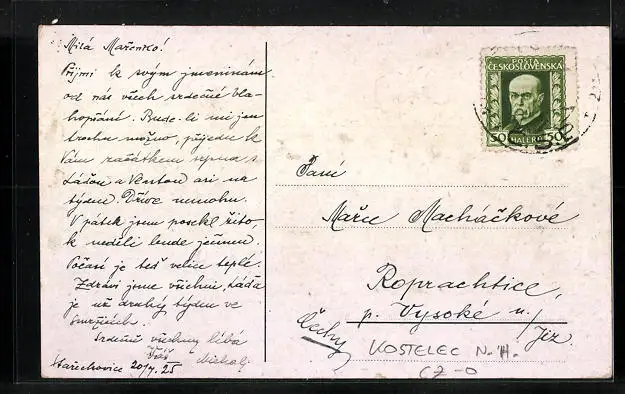 Milá Mařenko!
Přijmi k svým jmeninám
od nás všech srdečné bla-
hopřání. Bude-li mi jen
trochu možno, přijedu k
Vám začátkem srpna s
Láďou a Venton asi na
týden. Dříve nemohu.
V pátek jsme posekl žito,
k neděli bude ječmen.
Počasí je teď velice teplé.
Zdrávi jsme všichni, Láďa
je už druhý týden ve
Smržicích.
Srdečně všechny líbá
Váš
Stařechovice 20/7. 25
POSTA
ČESKOSLOVENSKÁ
50 HALÉŘŮ 50
Paní
Mařie Macháčkové
Roprachtice,
p. Vysoké n./
Jiz.
Čechy
KOSTELEC N. H.
CZ-O